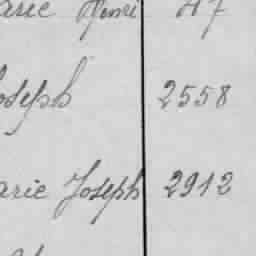 arie Henri 47
oseph 2558
arie Joseph 2912